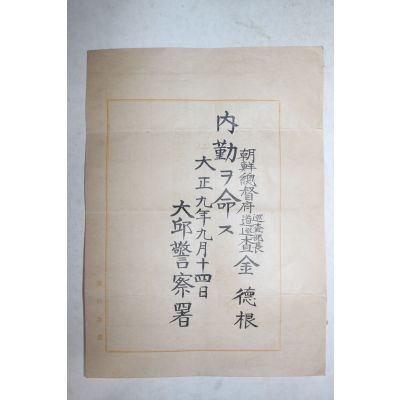 朝鮮總督府道巡査 金德根
巡査部長
内勤ヲ命ス
大正九年九月十四日
大邱警察署